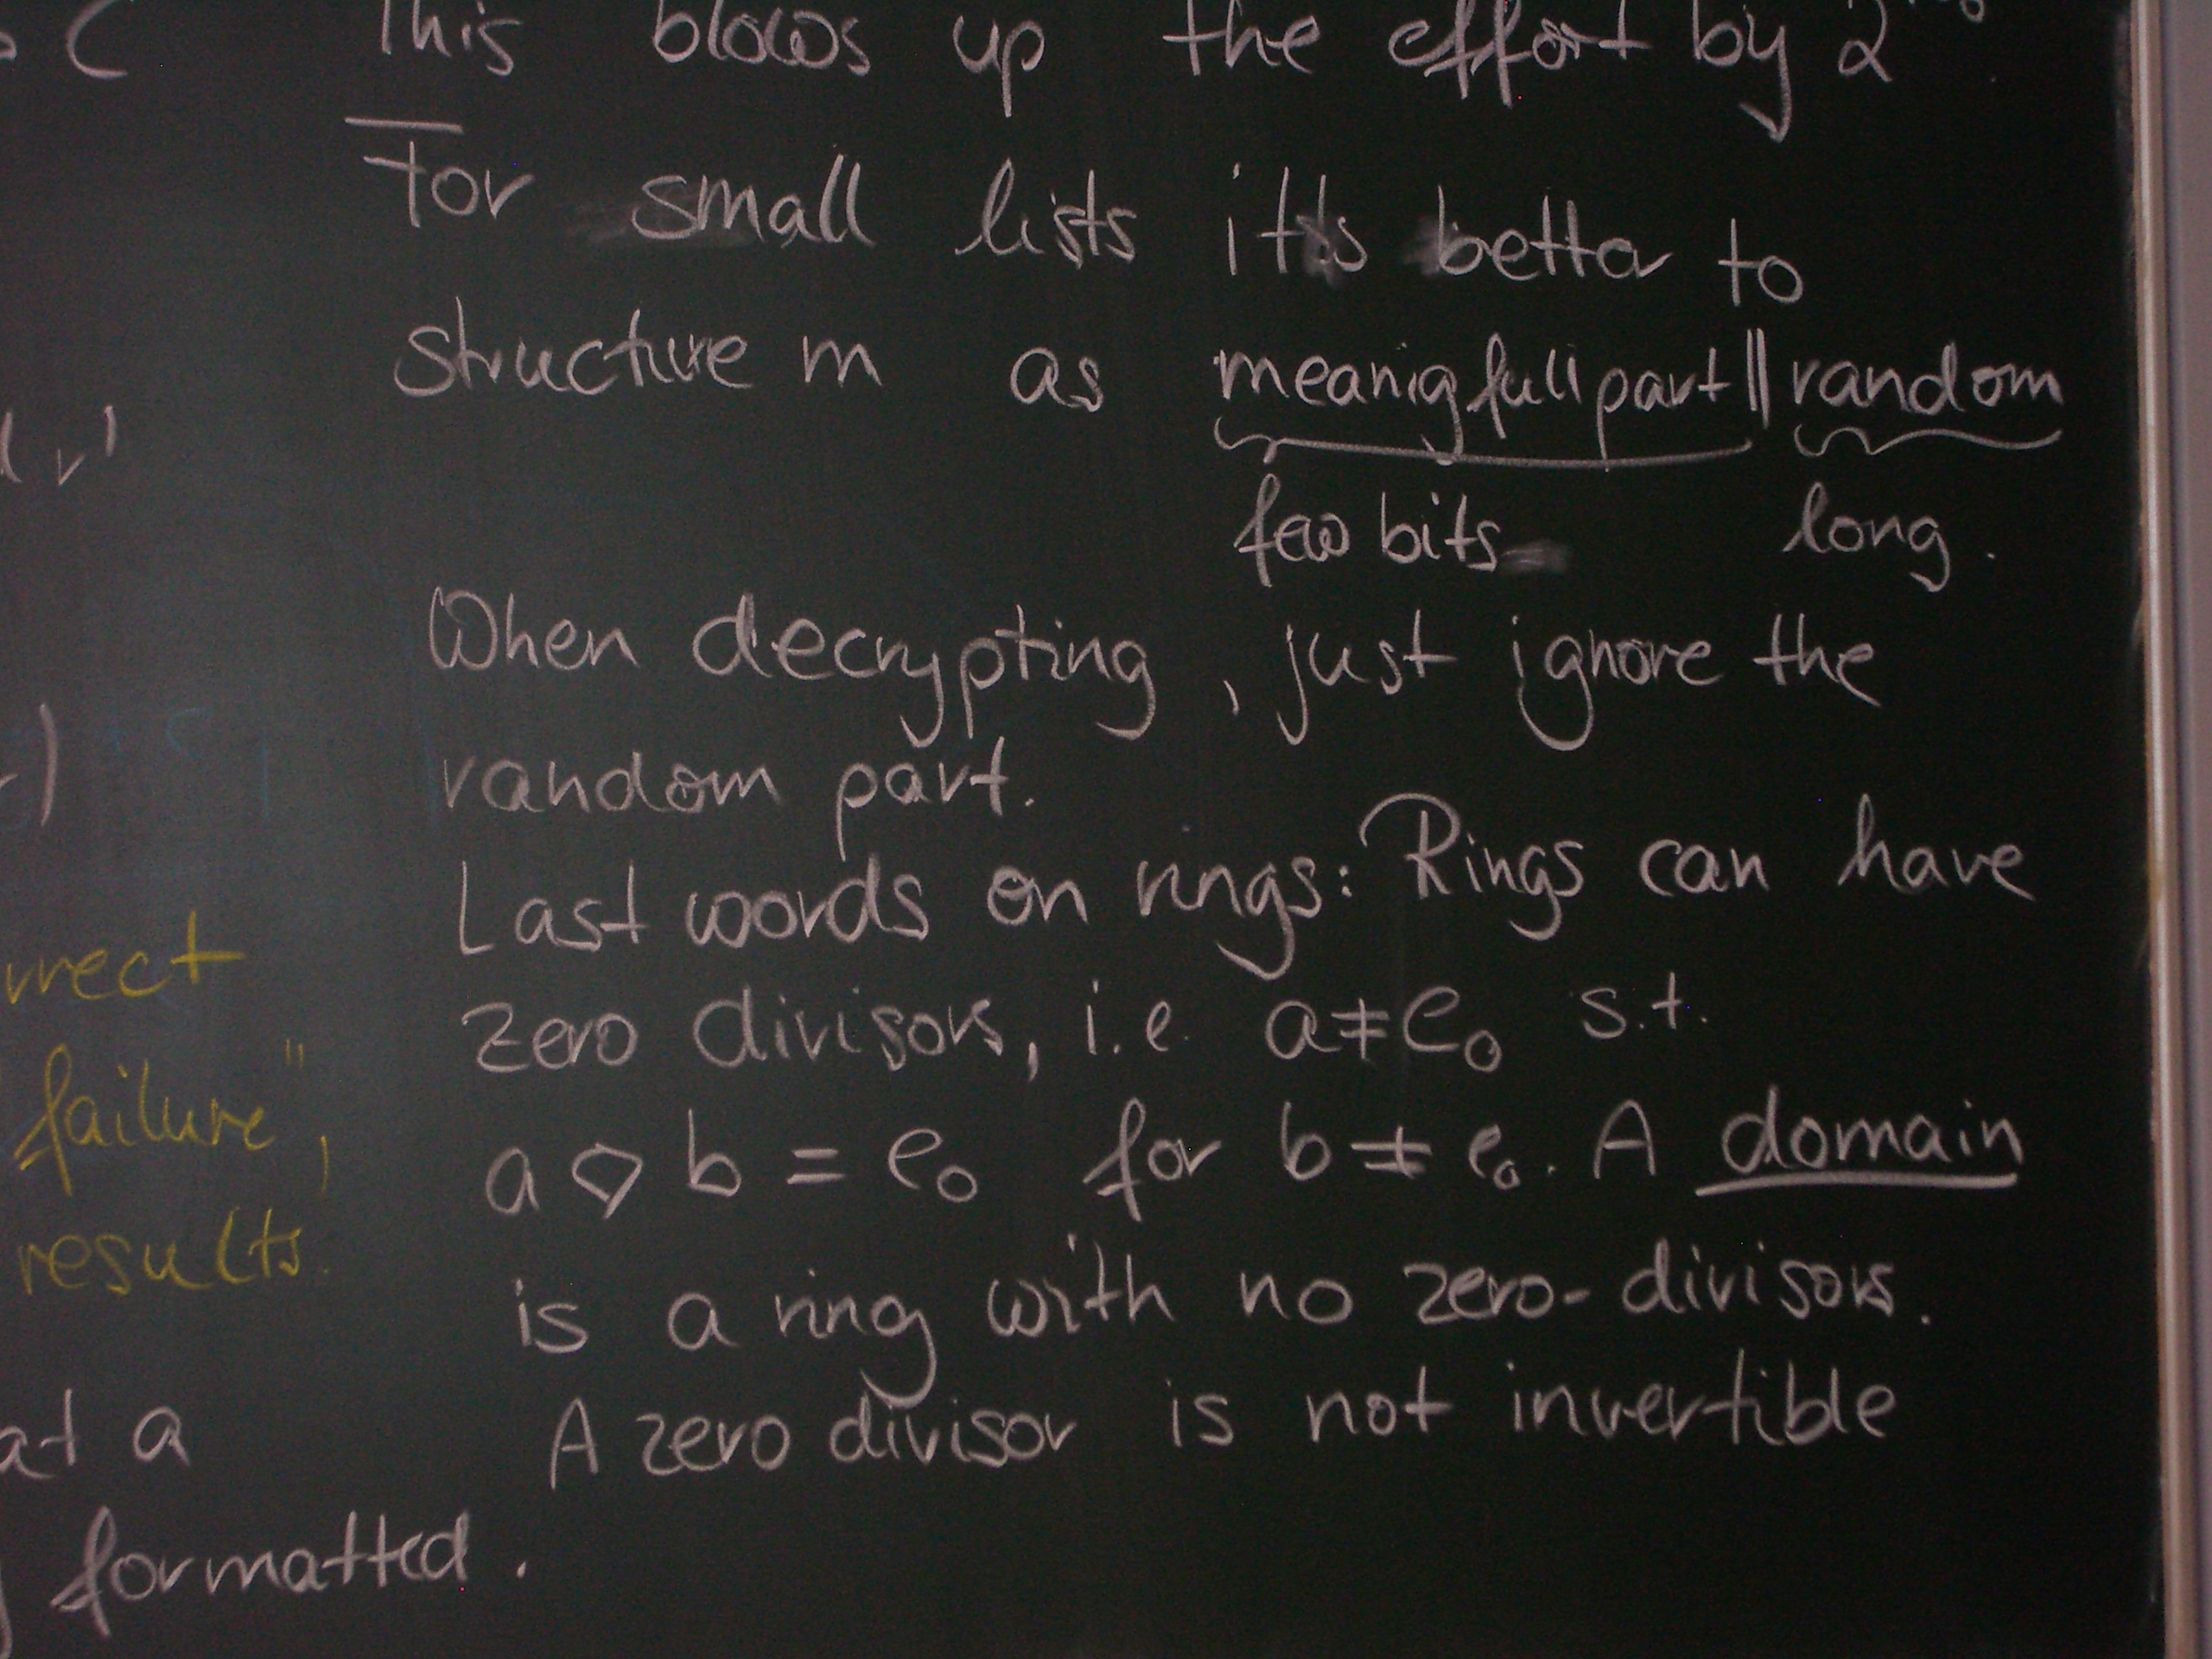 C
This blows up the effort by 2
For small lists it's better to
structure m as meanigfull part || random
few bits long.
When decrypting, just ignore the
random part.
Last words on rings: Rings can have
zero divisors, i.e. a ≠ e₀ s.t.
a ◇ b = e₀ for b ≠ e₀. A domain
is a ring with no zero-divisors.
A zero divisor is not invertible
failure",
results.
a
formatted.